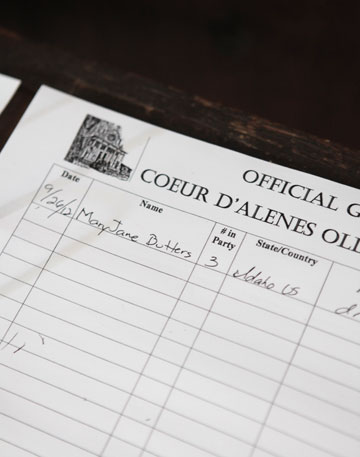 OFFICIAL G
COEUR D'ALENES OLD
Date Name # in Party State/Country
9/26/2 MaryJane Butters 3 Idaho US